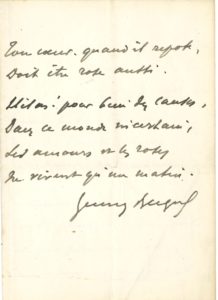 Ton cœur, quand il repose,
Doit être rose aussi.
Hélas! pour bien des causes,
Dans ce monde incertain,
Les amours et les roses
Ne vivent qu'un matin.